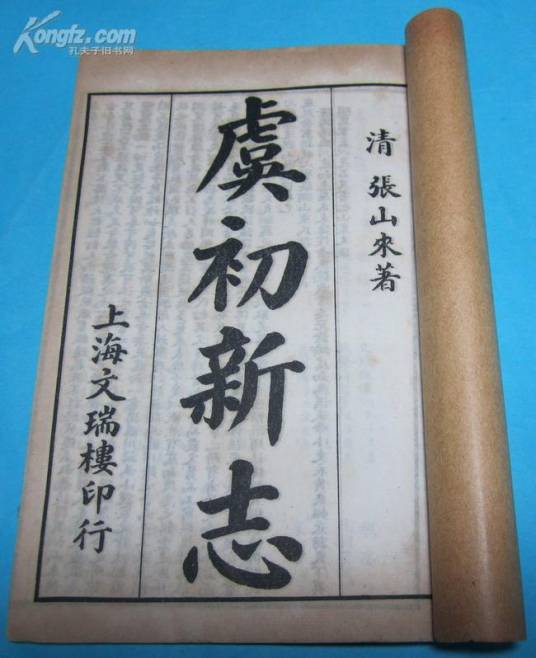 Kongfz.com
孔夫子旧书网
清 張山來著
虞初新志
上海文瑞樓印行